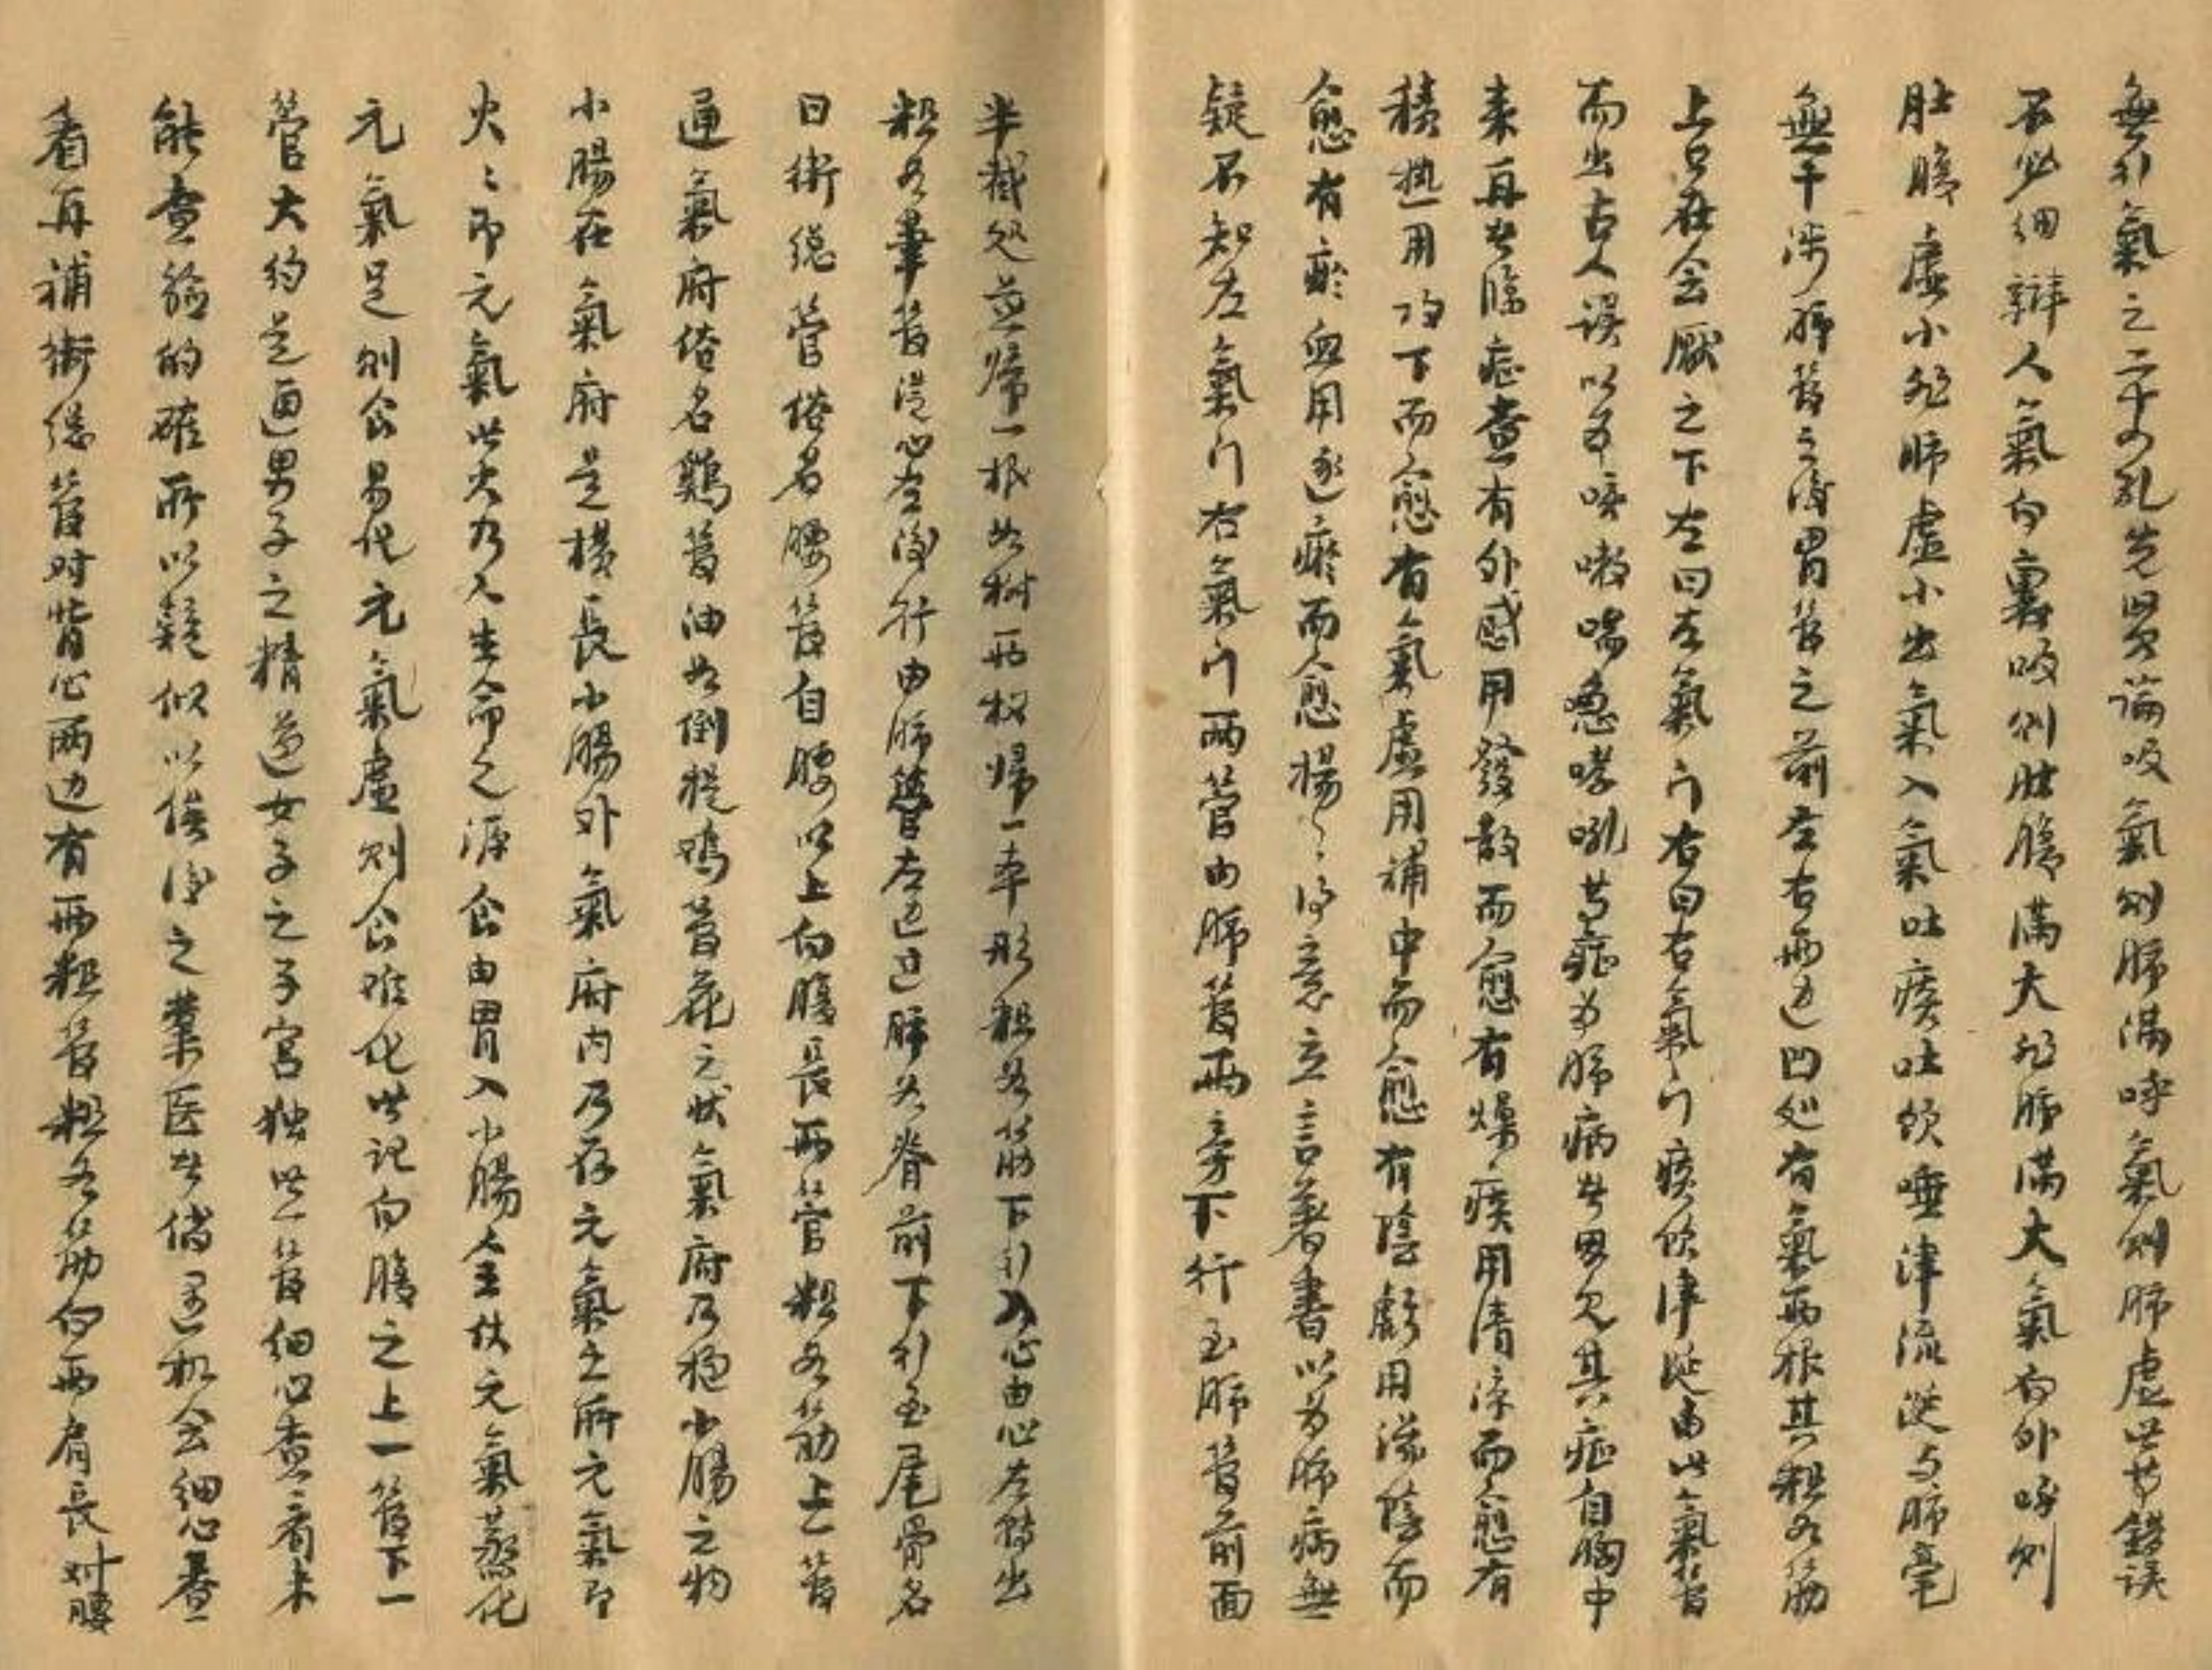 無行氣之二十四孔先賢論吸氣則肺滿呼氣則肺虛此等錯誤
不必細辯人氣向裏吸則肚腹滿大非肺滿大氣向外呼則
肚腹虛小非肺虛小出氣入氣吐痰吐飲唾津流涎与肺毫
無干涉肺管之後胃管之前左右兩边凹处有氣兩根其粗如筋
上口在会厭之下左曰左氣门右曰右氣门痰飲津涎由此氣管
而出古人誤以為咳嗽喘急哮吼等症為肺病者因見其症自胸中
來再者臨症查有外感用發散而愈有燥痰用清凉而愈有
積热用攻下而愈有氣虛用補中而愈有陰虧用滋陰而
愈有瘀血用逐瘀而愈揚〻得意立言著書以為肺病無
疑不知左氣门右氣门兩菅由肺管兩旁下行至肺管前面
半截处並歸一根如樹兩杈歸一本形粗如筋下行入心由心左轉出
粗如筆管從心左後行由肺管左边过肺入脊前下行至尾骨名
曰衛總菅俗名腰管自腰以上向腹長兩菅粗如筋上一管
通氣府俗名鷄管油如倒提鸡菅花之状氣府乃抱小腸之物
小腸在氣府是横長小腸外氣府內乃存元氣之所元氣即
火〻即元氣此火乃人生命之源食由胃入小腸全仗元氣蒸化
元氣足則食易化元氣虛則食难化此記向腹之上一管下一
菅大約是通男子之精道女子之子宮独此一管細心查看未
能查驗的確所以疑似以俟後之業医者倘遇机会細心查
看再補衛總管对背心兩边有兩粗管粗如筋向兩肩長对腰